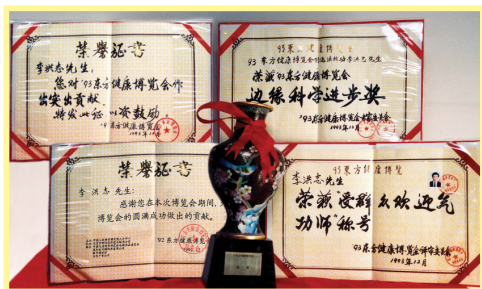 荣誉证书
李洪志先生：
您对'93东方健康博览会作
出突出贡献，
特发此证，以资鼓励。
'93东方健康博览会
'93东方健康博览会
李洪志先生
荣获'93东方健康博览会
边缘科学进步奖
'93东方健康博览会评审委员会
1993年12月
荣誉证书
李洪志 先生：
感谢您在本次博览会期间，
博览会的圆满成功做出的贡献。
'92东方健康博览
93东方健康博览
李洪志先生
荣获受群众欢迎气
功师称号
'93东方健康博览会评审委员会
1993年12月